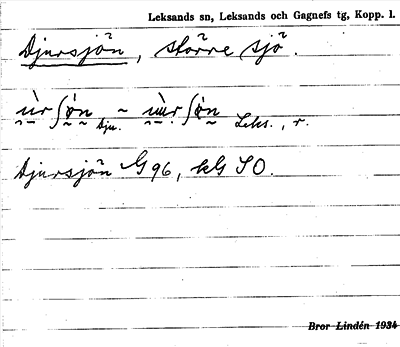 Leksands sn, Leksands och Gagnefs tg, Kopp. l.
Djursjön, större sjö.
ùrʃön Dju. ~ ùrʃön Leks., r.
Djursjön G 96, kG SO.
Bror Lindén 1934